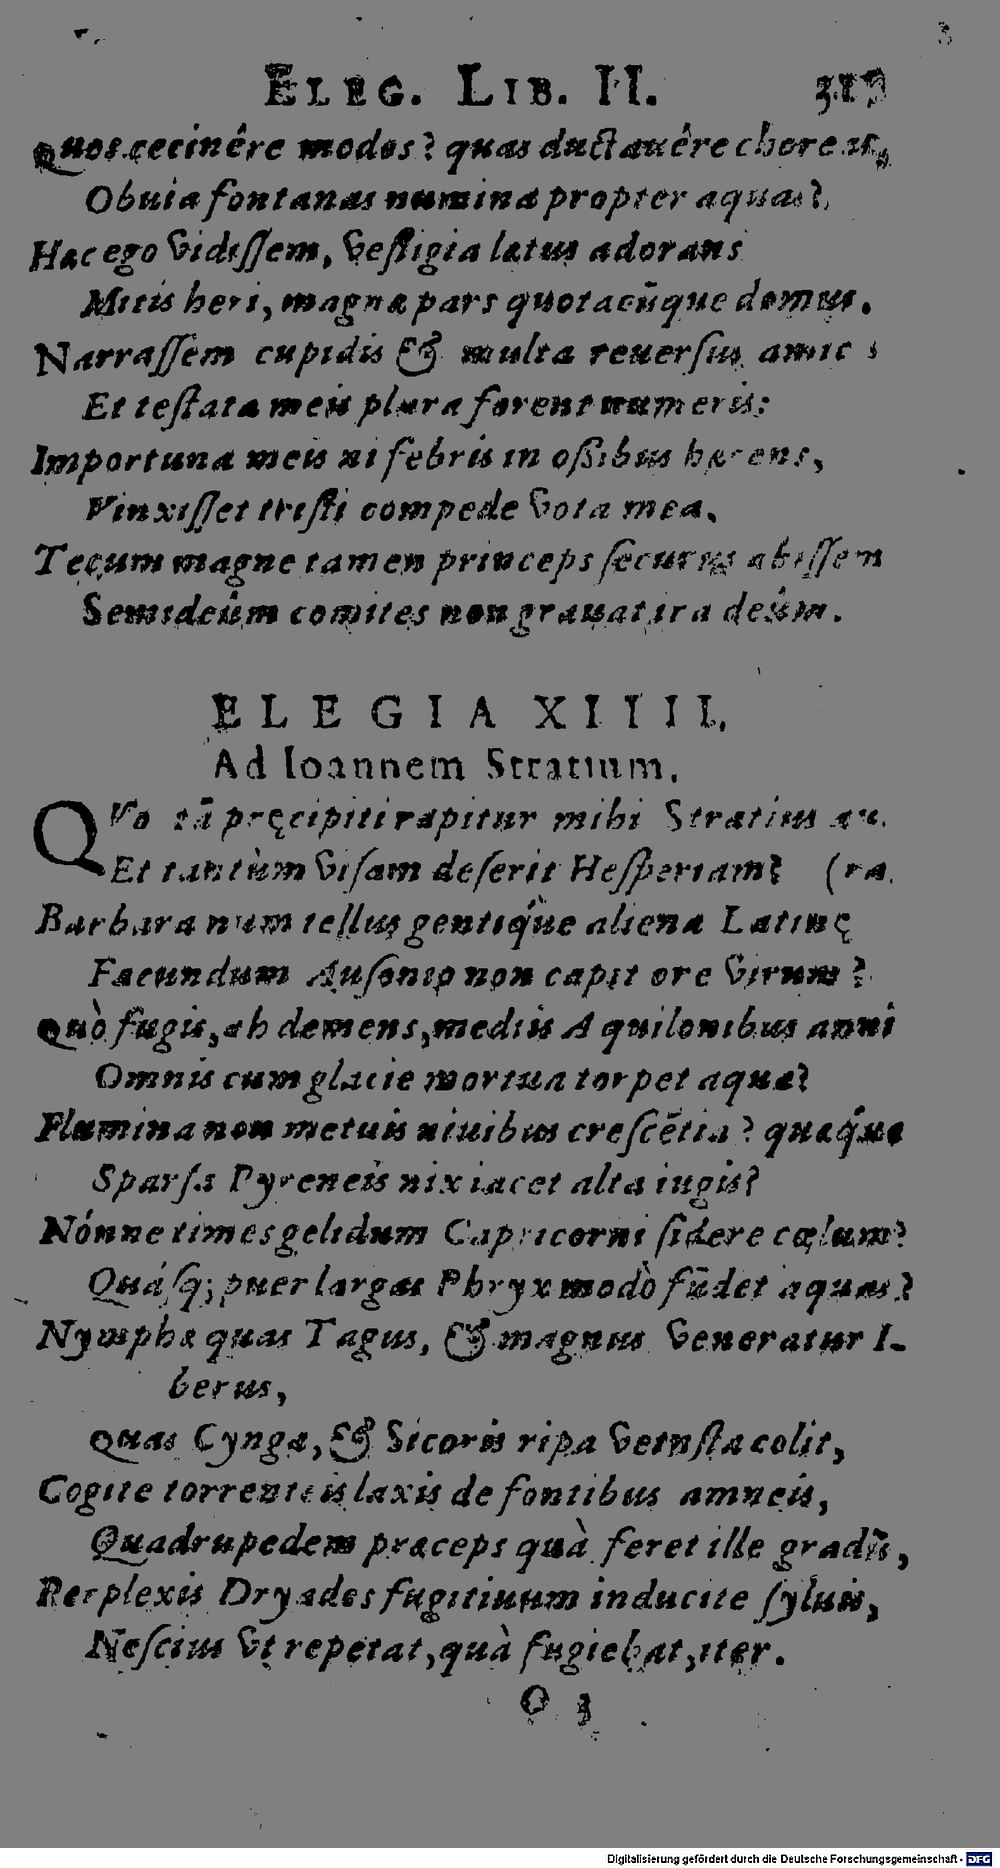 ELEG. LIB. II.
Quos cecinêre modos? quas ductauêre choreas,
Obuia fontanas numina propter aquas?
Hæc ego vidissem, vestigia lætus adorans
Mitis heri, magnæ pars quotacũque domus.
Narrassem cupidis & multa reuersus amic
Et testata meis plura forent numeris:
Importuna meis ni febris in oßibus hærens,
Vinxisset tristi compede vota mea.
Tecum magne tamen princeps securus abissem
Semideûm comites non grauat ira deûm.
ELEGIA XIIII.
Ad Ioannem Stratium.
QVo tã pręcipiti rapitur mihi Stratius au.
Et tantùm visam deserit Hesperiam? (ra.
Barbara num tellus gentiq́ue aliena Latinę
Facundum Ausonio non capit ore virum?
Quò fugis, ah demens, mediis Aquilonibus anni
Omnis cum glacie mortua torpet aqua?
Flumina non metuis niuibus crescẽtia? quaq́ue
Sparsa Pyreneis nix iacet alta iugis?
Nónne times gelidum Capricorni sidere cœlum?
Quásq; puer largas Phryx modò fũdet aquas?
Nymphæ quas Tagus, & magnus veneratur I-
berus,
Quas Cynga, & Sicoris ripa vetusta colit,
Cogite torrenteis laxis de fontibus amneis,
Quadrupedem præceps quà feret ille gradũ,
Perplexis Dryades fugitiuum inducite syluis,
Nescius vt repetat, quà fugiebat, iter.
O 3
Digitalisierung gefördert durch die Deutsche Forschungsgemeinschaft - DFG